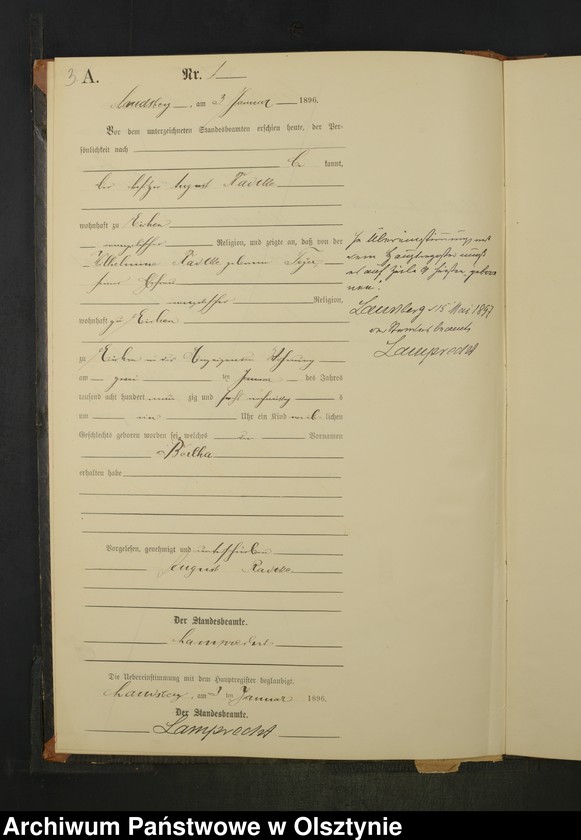 3 A. Nr. 1
Landsberg, am 3 Januar 1896.
Vor dem unterzeichneten Standesbeamten erschien heute, der Per-
sönlichkeit nach
kannt,
der August
wohnhaft zu Eichen
evangelischer Religion, und zeigte an, daß von der
Wilhelmine geborene
seiner Ehefrau
evangelischer Religion,
wohnhaft zu Eichen
zu Eichen in der Wohnung
am zwei ten Januar des Jahres
tausend acht hundert neun zig und sechs s
um ein Uhr ein Kind weib lichen
Geschlechts geboren worden sei, welches Vornamen
Bertha
erhalten habe
Vorgelesen, genehmigt und unterschrieben
August
Der Standesbeamte.
Lamprecht
Die Uebereinstimmung mit dem Hauptregister beglaubigt.
Landsberg, am 3 ten Januar 1896.
Der Standesbeamte.
Lamprecht
In Übereinstimmung mit
dem Hauptregister muß
es auf Zeile geboren
Landsberg 15 Mai 1897
Der Standesbeamte
Lamprecht
Archiwum Państwowe w Olsztynie